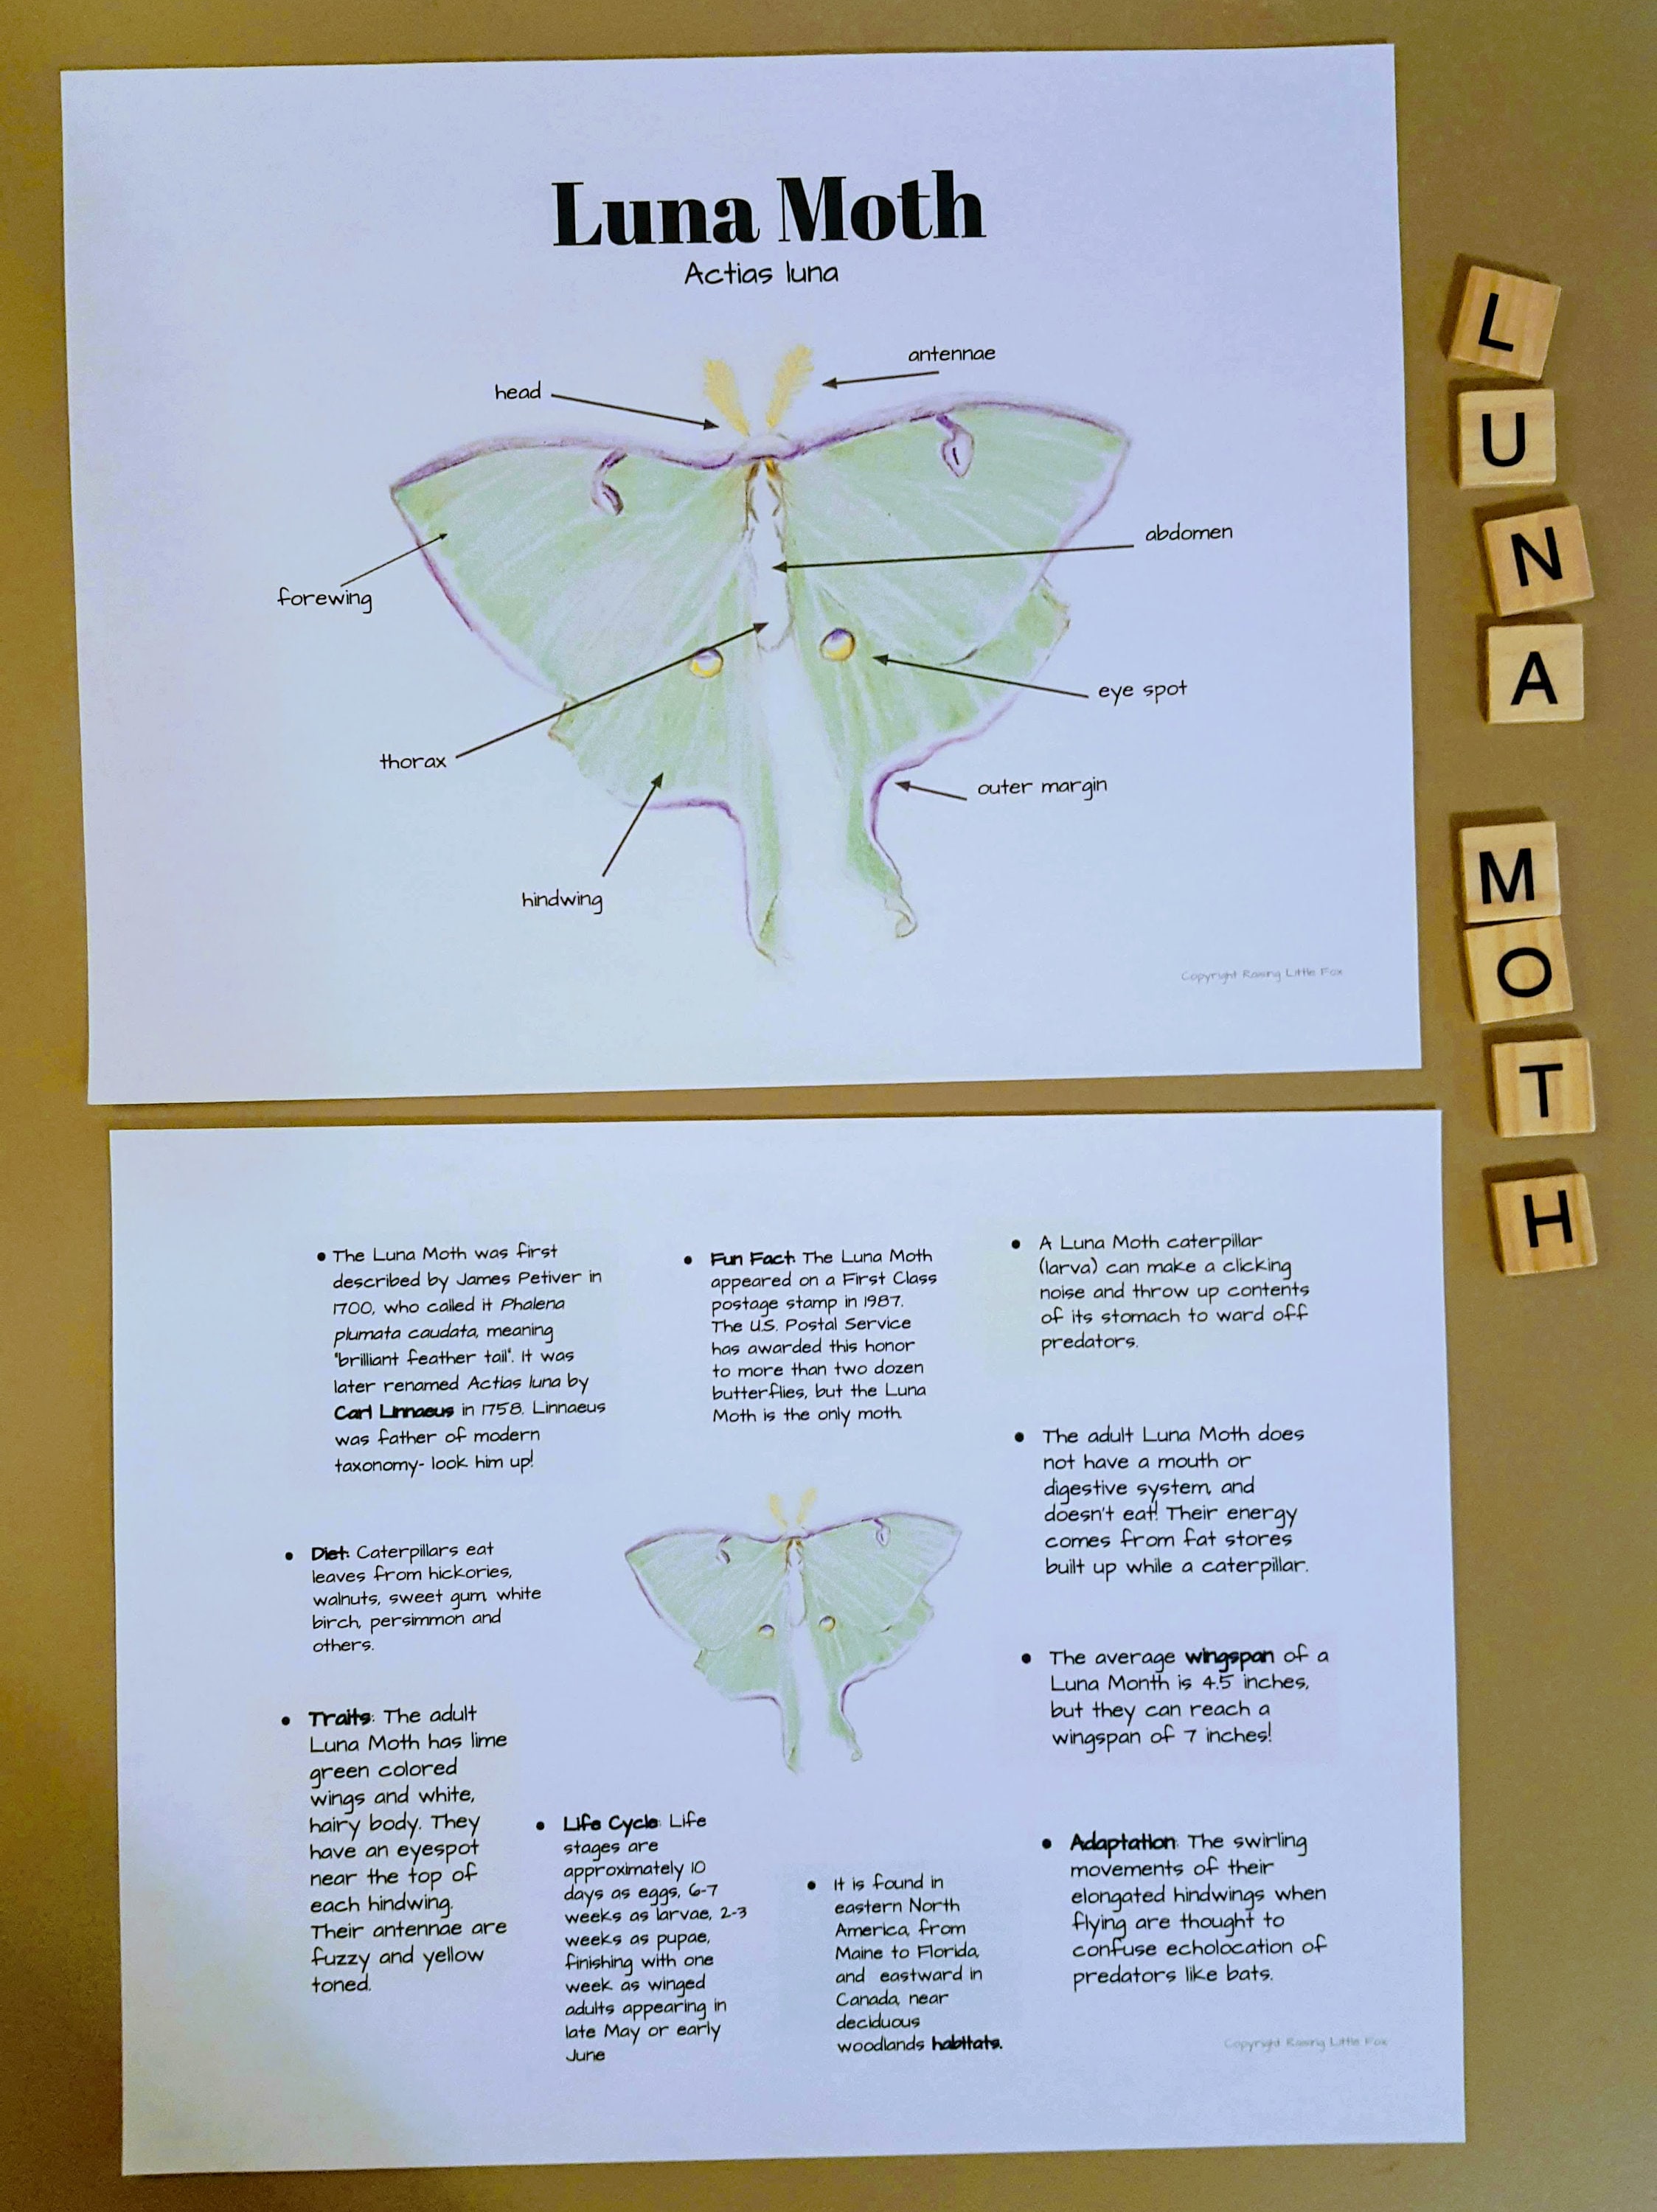 Luna Moth
Actias luna
antennae
head
abdomen
forewing
eye spot
thorax
outer margin
hindwing
Copyright Raising Little Fox
L
U
N
A
M
O
T
H
The Luna Moth was first
described by James Petiver in
1700, who called it Phalena
plumata caudata, meaning
"brilliant feather tail". It was
later renamed Actias luna by
Carl Linnaeus in 1758. Linnaeus
was father of modern
taxonomy- look him up!
Fun Fact: The Luna Moth
appeared on a First Class
postage stamp in 1987.
The U.S. Postal Service
has awarded this honor
to more than two dozen
butterflies, but the Luna
Moth is the only moth.
A Luna Moth caterpillar
(larva) can make a clicking
noise and throw up contents
of its stomach to ward off
predators.
The adult Luna Moth does
not have a mouth or
digestive system, and
doesn't eat! Their energy
comes from fat stores
built up while a caterpillar.
Diet: Caterpillars eat
leaves from hickories,
walnuts, sweet gum, white
birch, persimmon and
others.
The average wingspan of a
Luna Month is 4.5 inches,
but they can reach a
wingspan of 7 inches!
Traits: The adult
Luna Moth has lime
green colored
wings and white,
hairy body. They
have an eyespot
near the top of
each hindwing.
Their antennae are
fuzzy and yellow
toned.
Life Cycle: Life
stages are
approximately 10
days as eggs, 6-7
weeks as larvae, 2-3
weeks as pupae,
finishing with one
week as winged
adults appearing in
late May or early
June
It is found in
eastern North
America, from
Maine to Florida,
and eastward in
Canada, near
deciduous
woodlands habitats.
Adaptation: The swirling
movements of their
elongated hindwings when
flying are thought to
confuse echolocation of
predators like bats.
Copyright Raising Little Fox